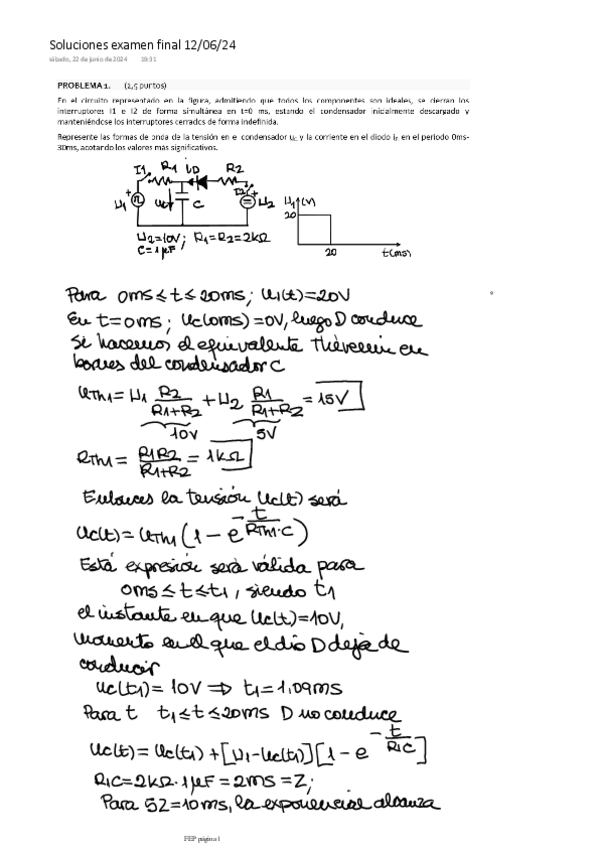 Soluciones examen final 12/06/24
sábado, 22 de junio de 2024 19:31
PROBLEMA 1. (2,5 puntos)
En el circuito representado en la figura, admitiendo que todos los componentes son ideales, se cierran los
interruptores I1 e I2 de forma simultánea en t=0 ms, estando el condensador inicialmente descargado y
manteniéndose los interruptores cerrados de forma indefinida.
Represente las formas de onda de la tensión en el condensador uc y la corriente en el diodo iD en el periodo 0ms-
30ms, acotando los valores más significativos.
I1 R1 iD R2
U1 uc C I2 U2
U1(V)
20
20 t(ms)
U2=10V; R1=R2=2kΩ
C=1μF
Para 0ms≤t≤20ms; U1(t)=20V
En t=0ms; Uc(0ms)=0V, luego D conduce
Si hacemos el equivalente Thévenin en
bornes del condensador C
UTH1= U1 R2/(R1+R2) + U2 R1/(R1+R2) = 15V
10V 5V
RTH1= R1R2/(R1+R2) = 1kΩ
Entonces la tensión Uc(t) será
Uc(t)= UTH1(1-e^(-t/(RTH1·C)))
Está expresión será válida para
0ms≤t≤t1, siendo t1
el instante en que Uc(t)=10V,
momento en el que el dio D deja de
conducir
Uc(t1)=10V ⇒ t1=1,09ms
Para t t1≤t≤20ms D no conduce
Uc(t)= Uc(t1)+[U1-Uc(t1)][1-e^(-t/(R1C))]
R1C=2kΩ·1μF=2ms=Z;
Para 5Z=10ms, la exponencial alcanza
FEP página 1